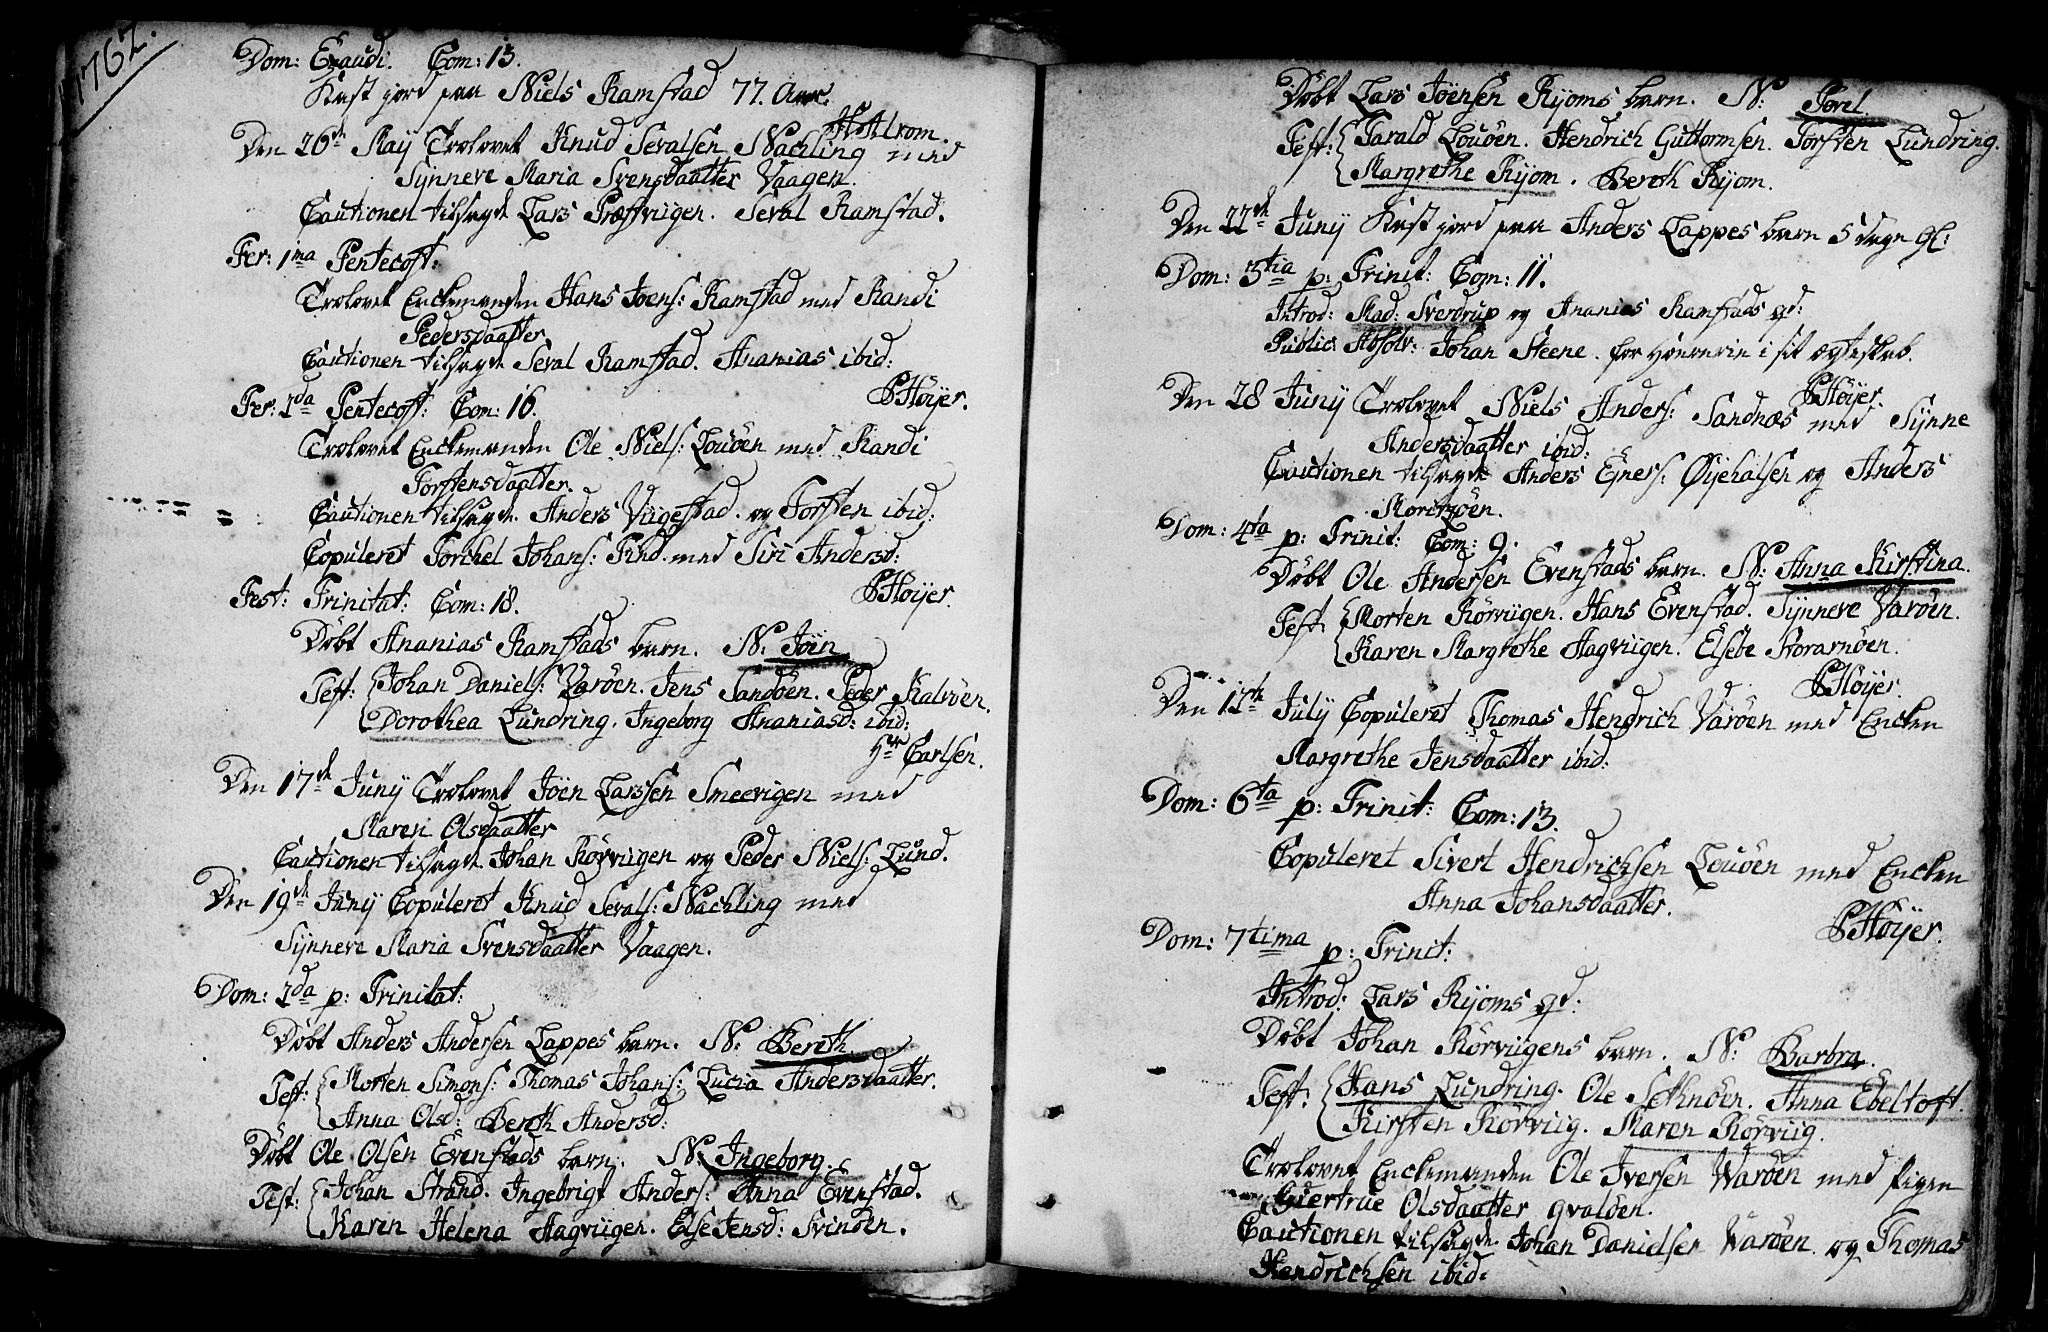 1762.
Dom: Exaudi. Com: 13.
Kast jord paa Niels Ramstad 77. Aar.
HAlrom.
Den 26de May Trolovet Knud Sevalsen Nachling med
Synneve Maria Svensdaatter Vaagen.
Cautionen tilsagde Lars Præstviigen. Seval Ramstad.
Fer: 1ma Pentecost:
Trolovet Enckemanden Hans Joens: Ramstad med Randi
Pedersdaatter
Cautionen tilsagde Seval Ramstad. Ananias ibid:
PHøyer.
Fer: 2da Pentecost: Com: 16.
Trolovet Enckemanden Ole Niels: Louøen med Randi
Torstensdaatter.
Cautionen tilsagde Anders Viigestad. og Torsten ibid:
Copuleret Torchel Johans: Find. med Siri Andersd:
PHøyer.
Fest: Trinitat: Com: 18.
Døbt Ananias Ramstads barn. N: Joen
Test: Johan Daniels: Varøen. Jens Sandøen. Peder Kalvøen.
Dorothea Lundring. Ingeborg Ananiasd: ibid:
Hr Carlsen.
Den 17de Juny Trolovet Joen Larssen Smeevigen med
Maren Olsdaatter
Cautionen tilsagde Johan Rørviigen og Peder Niels: Lund.
Den 19de Juny Copuleret Knud Sevals: Nachling med
Synneve Maria Svensdaatter Vaagen.
Dom: 2da p: Trinitat:
Døbt Anders Andersen Lappes barn. N: Bereth.
Test: Morten Simons: Thomas Johans: Lucia Andersdaatter.
Anna Olsd: Bereth Andersd:
Døbt Ole Olsen Evenstads barn. N: Ingeborg.
Test: Johan Strand. Ingebrigt Anders: Anna Evenstad.
Karen Helena Hagviigen. Else Jensd: Svinøen.
Døbt Lars Joensen Ryoms barn. N: Povel.
Test: Tarald Louøen. Hendrich Guttormsen. Torsten Lundring.
Margrethe Ryom. Bereth Ryom.
Den 22de Juny Kast jord paa Anders Lappes barn 5 dage gl:
Dom: 3tia p: Trinit: Com: 11.
Introd: Mad: Sverdrup og Ananias Ramstads qd:
Public: Absolv: Johan Steene. for Hoererie i sit ægteskab.
PHøyer.
Den 28 Juny Trolovet Niels Anders: Sandnæs med Synne
Andersdaatter ibid:
Cautionen tilsagde Anders Eners: Øyehalsen og Anders
Moritzøen.
Dom: 4ta p: Trinit: Com: 9.
Døbt Ole Andersen Evenstads barn. N: Anna Kirstina.
Test: Morten Rørviigen. Hans Evenstad. Synneve Varøen.
Karen Margrethe Hagviigen. Elsebe Storarnøen.
PHøyer.
Den 12te July Copuleret Thomas Hendrich Varøen med Encken
Margrethe Jensdaatter ibid:
Dom: 6ta p: Trinit: Com: 13.
Copuleret Sivert Hendrichsen Louøen med Encken
Anna Johansdaatter.
PHøyer.
Dom: 7tima p: Trinit:
Introd: Lars Ryoms qd:
Døbt Johan Rørviigens barn. N: Barbra.
Test: Hans Lundring. Ole Sethnøen. Anna Ebeltoft.
Kirsten Rørviig. Maren Rørviig.
Trolovet Enckemanden Ole Iversen Warøen med Pigen
Giertrue Olsdaatter Qvalden.
Cautionen tilsagde Johan Danielsen Warøen. og Thomas
Hendrichsen ibid: